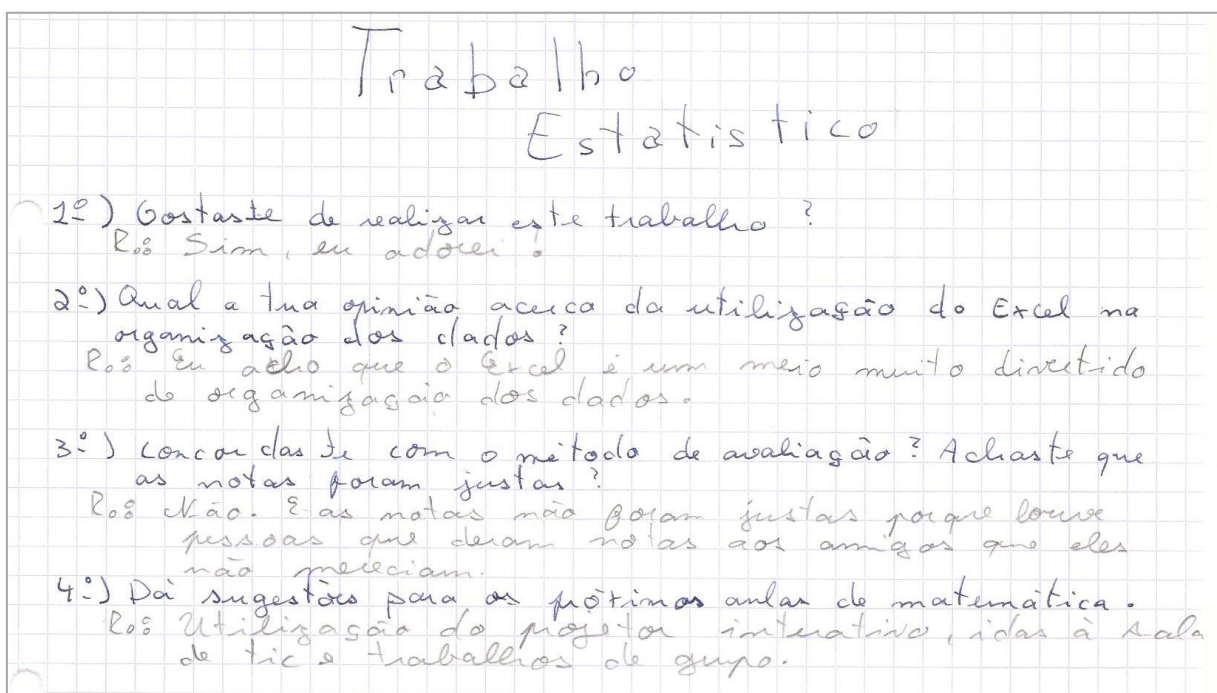 Trabalho
Estatistico
1º) Gostaste de realizar este trabalho?
R.: Sim, eu adorei!
2º) Qual a tua opinião acerca da utilização do Excel na
organização dos dados?
R.: Eu acho que o Excel é um meio muito divertido
de organização dos dados.
3º) Concordaste com o método de avaliação? Achaste que
as notas foram justas?
R.: Não. E as notas não foram justas porque houve
pessoas que deram notas aos amigos que eles
não mereciam.
4º) Dá sugestões para as próximas aulas de matemática.
R.: Utilização do projetor interativo, idas à sala
de tic e trabalhos de grupo.